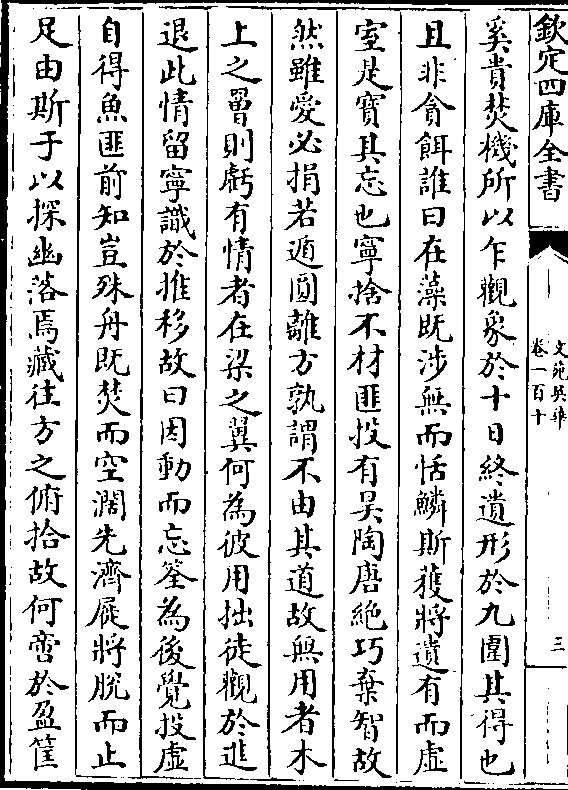 欽定四庫全書
文苑英華
卷一百十
三
奚貴焚機所以乍觀象於十日終遺形於九圍其得也
且非貪餌誰曰在藻既涉無而恬鱗斯獲將遺有而虛
室是寳其忘也寧捨不材匪投有吴陶唐絶巧棄智故
然雖愛必捐若遁圓離方孰謂不由其道故無用者木
上之罾則虧有情者在梁之翼何為彼用拙徒觀於進
退此情留寧識於推移故曰因動而忘筌為後覺投虛
自得魚匪前知豈殊舟既焚而空濶先濟屣將脫而止
足由斯于以探幽落焉藏往方之俯拾故何啻於盈筐